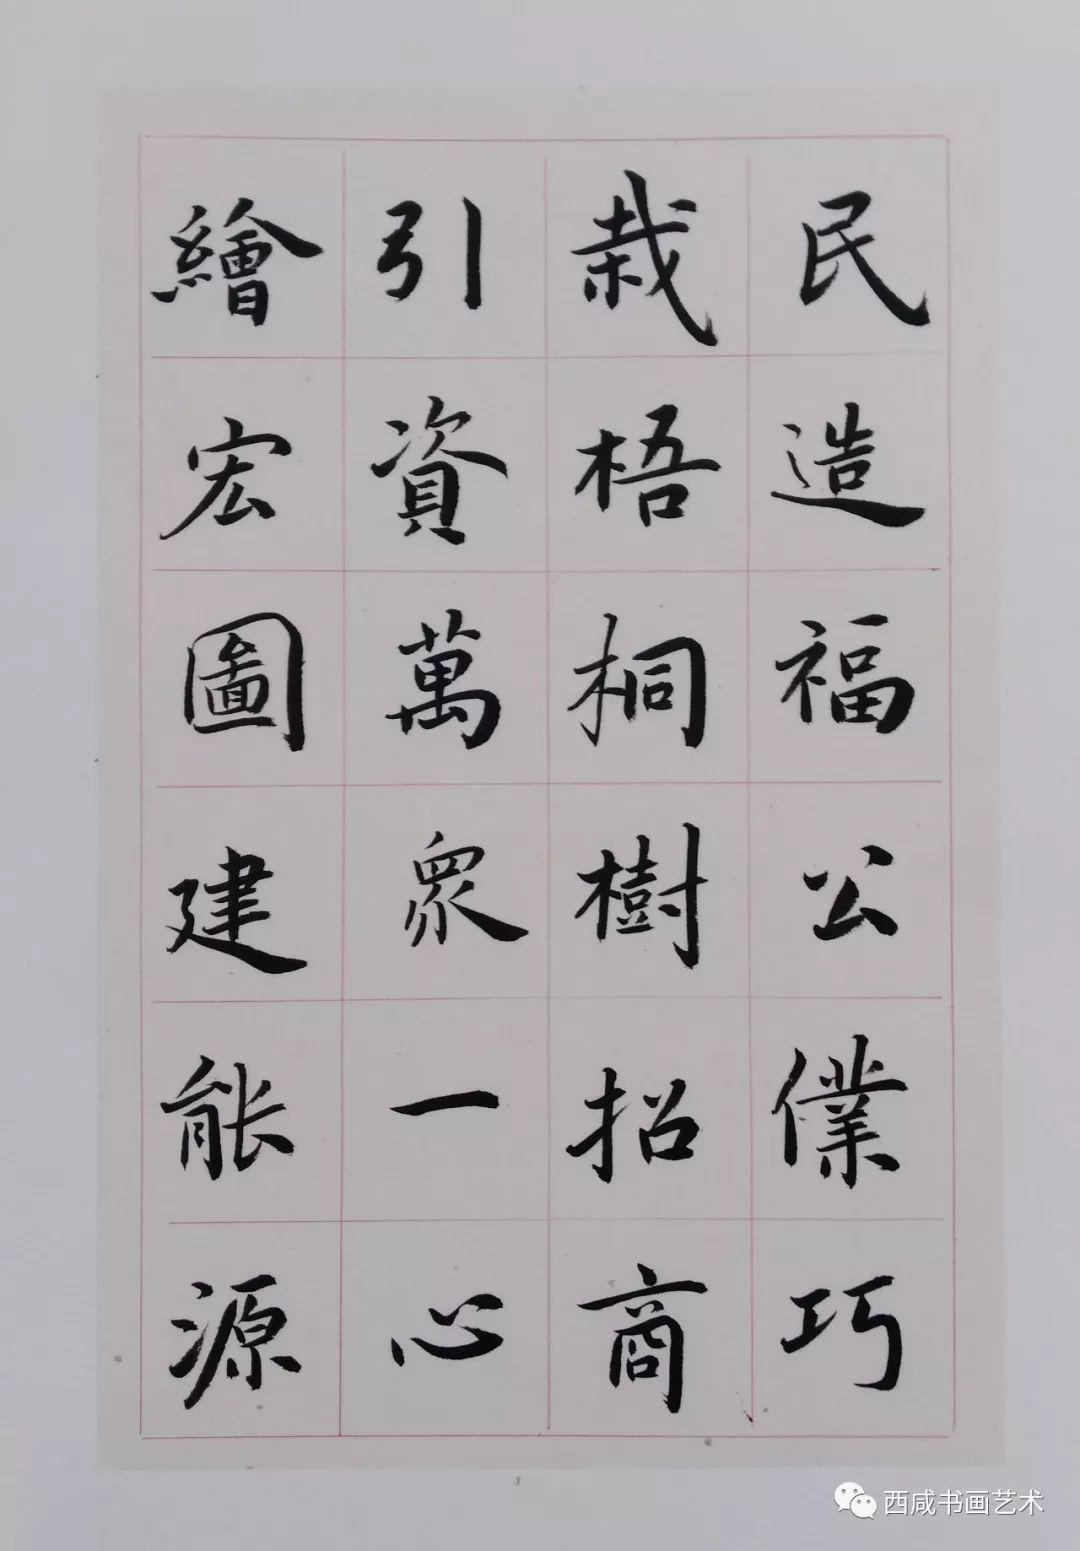 民造福公僕巧
栽梧桐樹招商
引資萬眾一心
繪宏圖建能源
8
西咸书画艺术